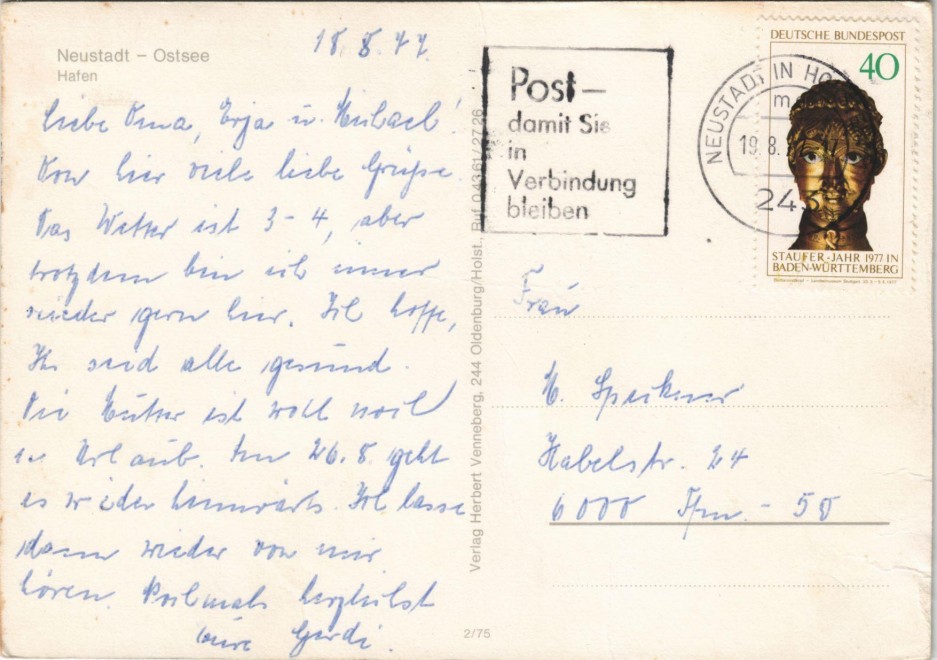 Neustadt – Ostsee
Hafen
18.8.77.
Liebe Oma, Erja u. Michael!
Von hier viele liebe Grüße.
Das Wetter ist 3-4, aber
trotzdem bin ich immer
wieder gern hier. Ich hoffe,
Ihr seid alle gesund.
Die Mutter ist wohl noch
in Urlaub. Am 26.8 geht
es wieder heimwärts. Ich lasse
dann wieder von mir
hören. Nochmals herzlichst
eure Gerdi.
Verlag Herbert Venneberg, 244 Oldenburg/Holst., Ruf 0 43 61/27 26
2/75
Post –
damit Sie
in
Verbindung
bleiben
NEUSTADT IN HO
19.8.
24
DEUTSCHE BUNDESPOST
40
STAUFER-JAHR 1977 IN
BADEN-WÜRTTEMBERG
Frau
H.
Habelstr. 24
6000 Ffm. - 50